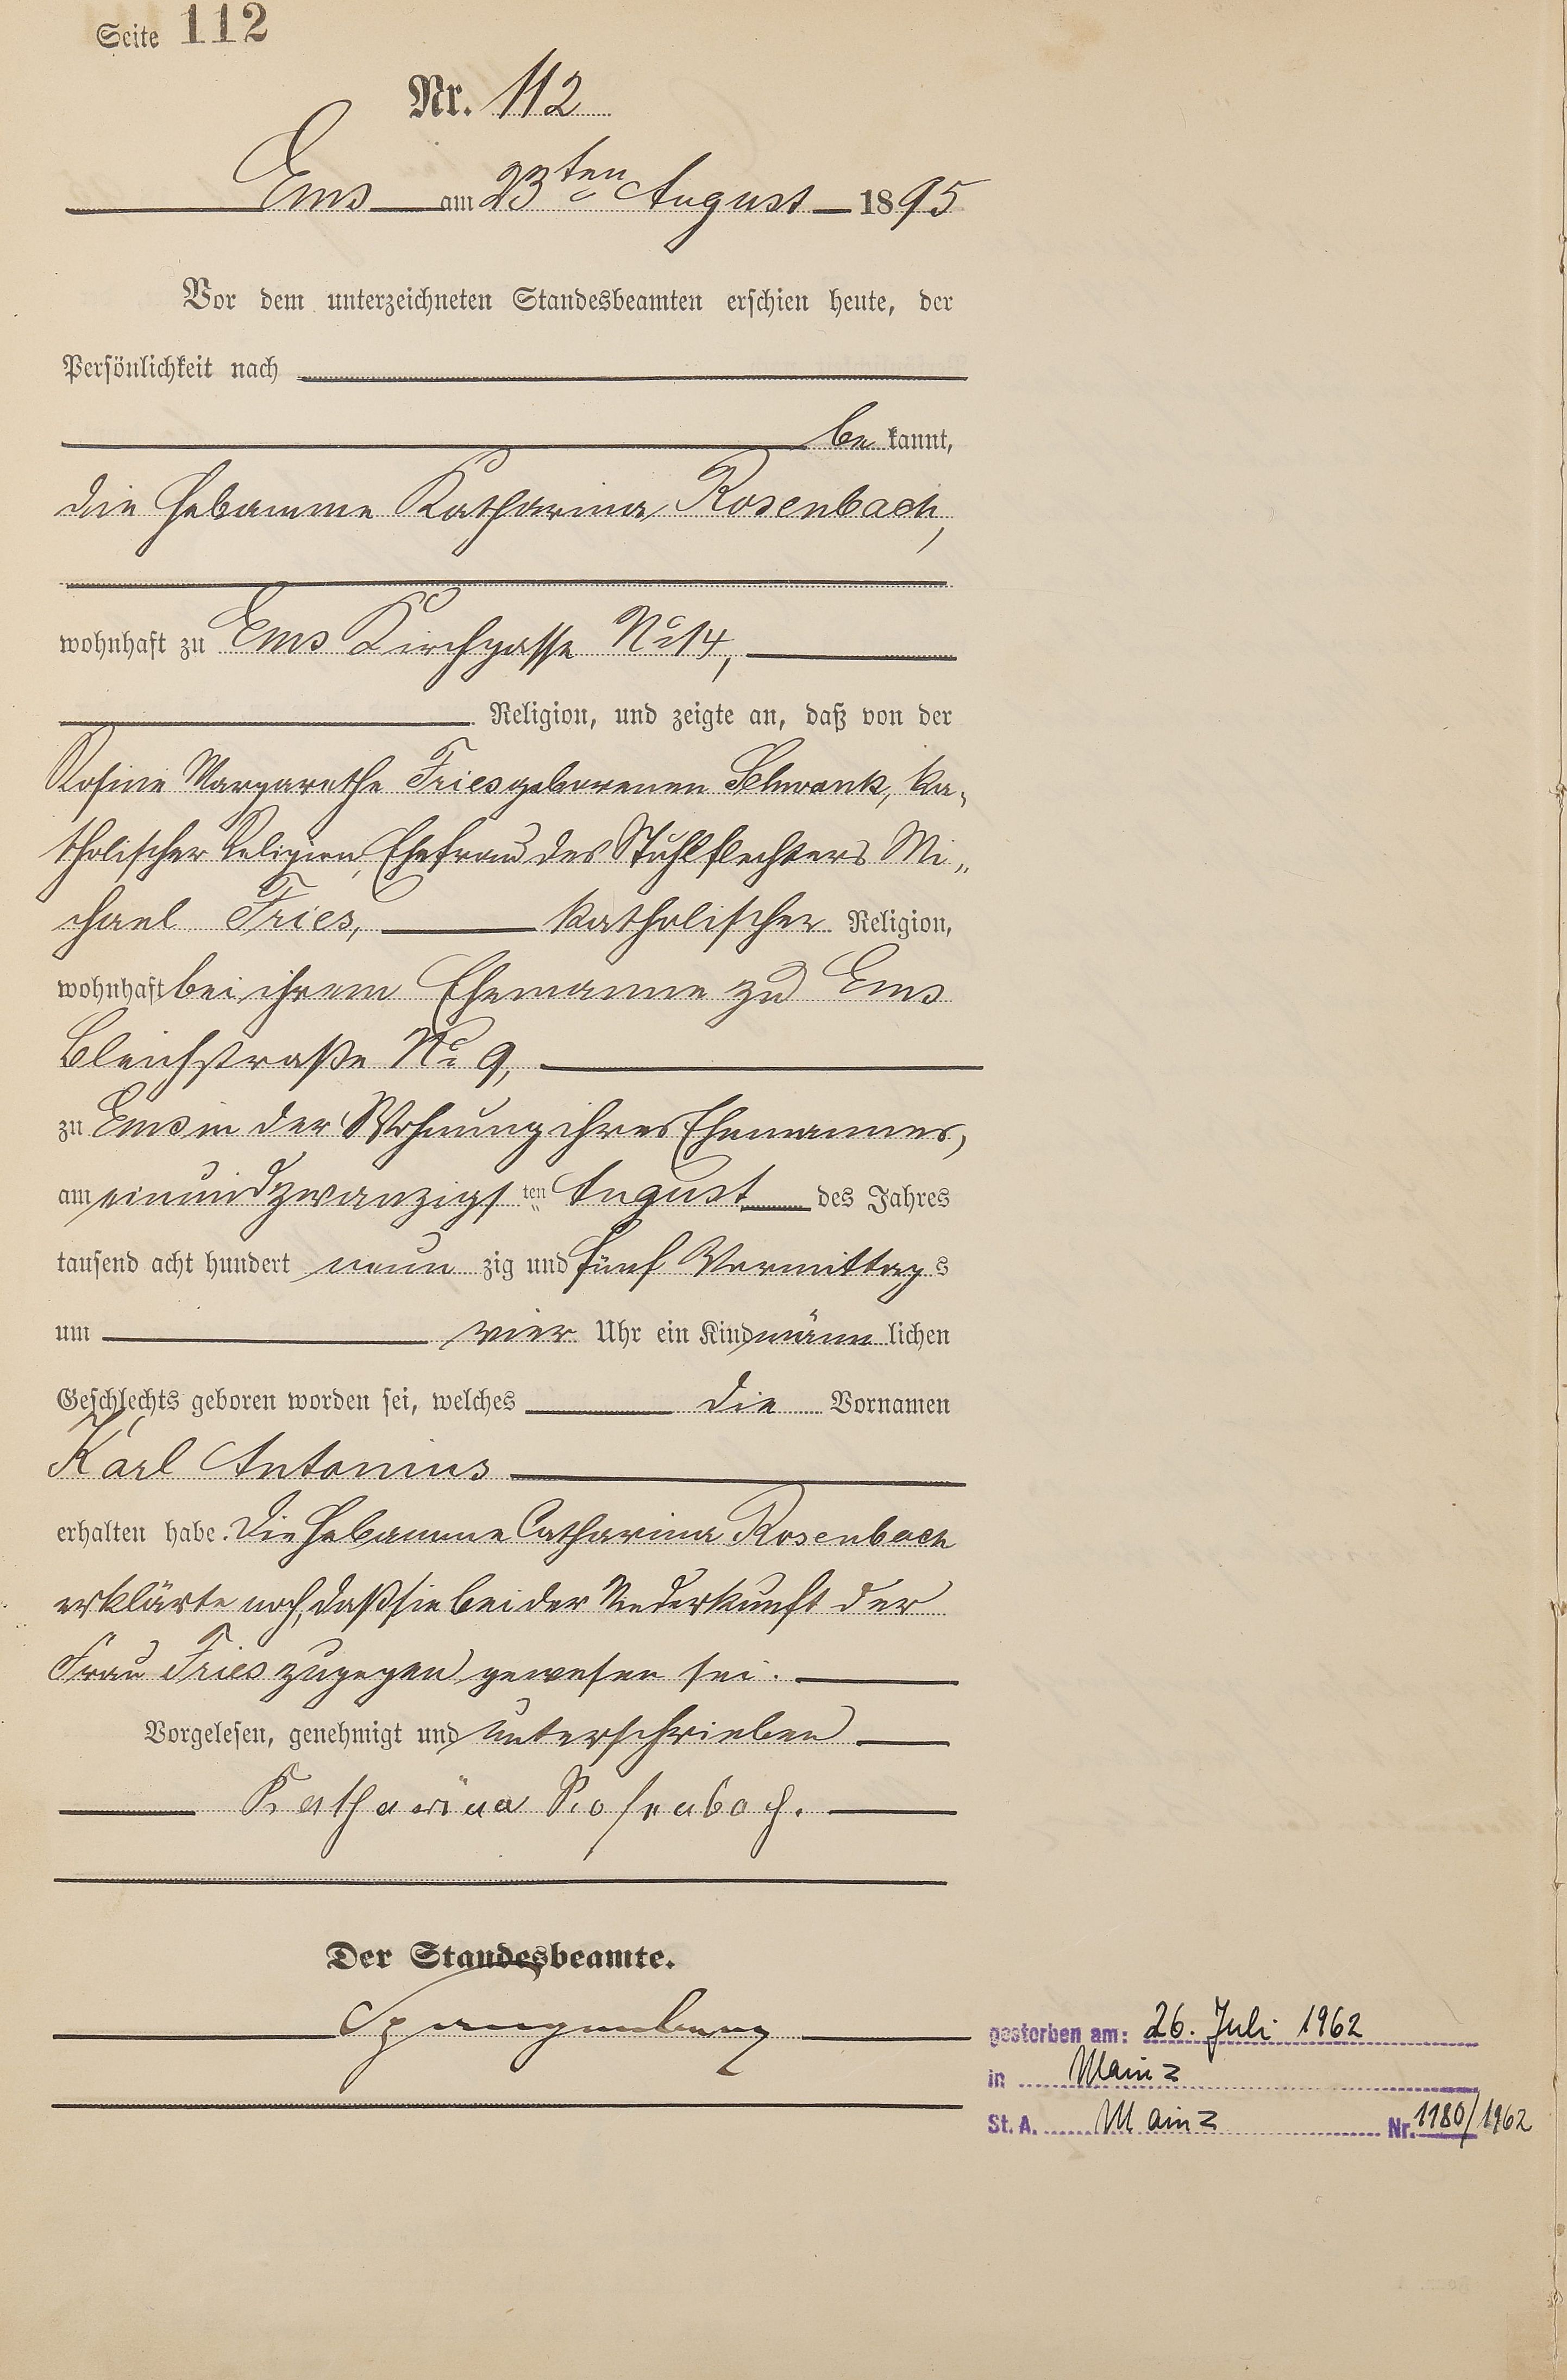 Seite 112
Nr. 112
Ems am 23ten August 1895
Vor dem unterzeichneten Standesbeamten erschien heute, der
Persönlichkeit nach
be kannt,
die Hebamme Katharina Rosenbach,
wohnhaft zu Ems Kirchgasse No 14,
Religion, und zeigte an, daß von der
Rosine Margarethe Fries geborenen Schwank, ka-
tholischer Religion, Ehefrau des Stuhlflechters Mi-
chael Fries, katholischer Religion,
wohnhaft bei ihrem Ehemanne zu Ems
Bleichstraße No 9,
zu Ems in der Wohnung ihres Ehemannes,
am einundzwanzigsten August des Jahres
tausend acht hundert neun zig und fünf Vormittags
um vier Uhr ein Kind männlichen
Geschlechts geboren worden sei, welches die Vornamen
Karl Antonius
erhalten habe. Die Hebamme Catharina Rosenbach
erklärte noch, daß sie bei der Niederkunft der
Frau Fries zugegen gewesen sei.
Vorgelesen, genehmigt und unterschrieben
Katharina Rosenbach.
Der Standesbeamte.
Spangenberg
gestorben am: 26. Juli 1962
in Mainz
St. A. Mainz Nr. 1180/1962